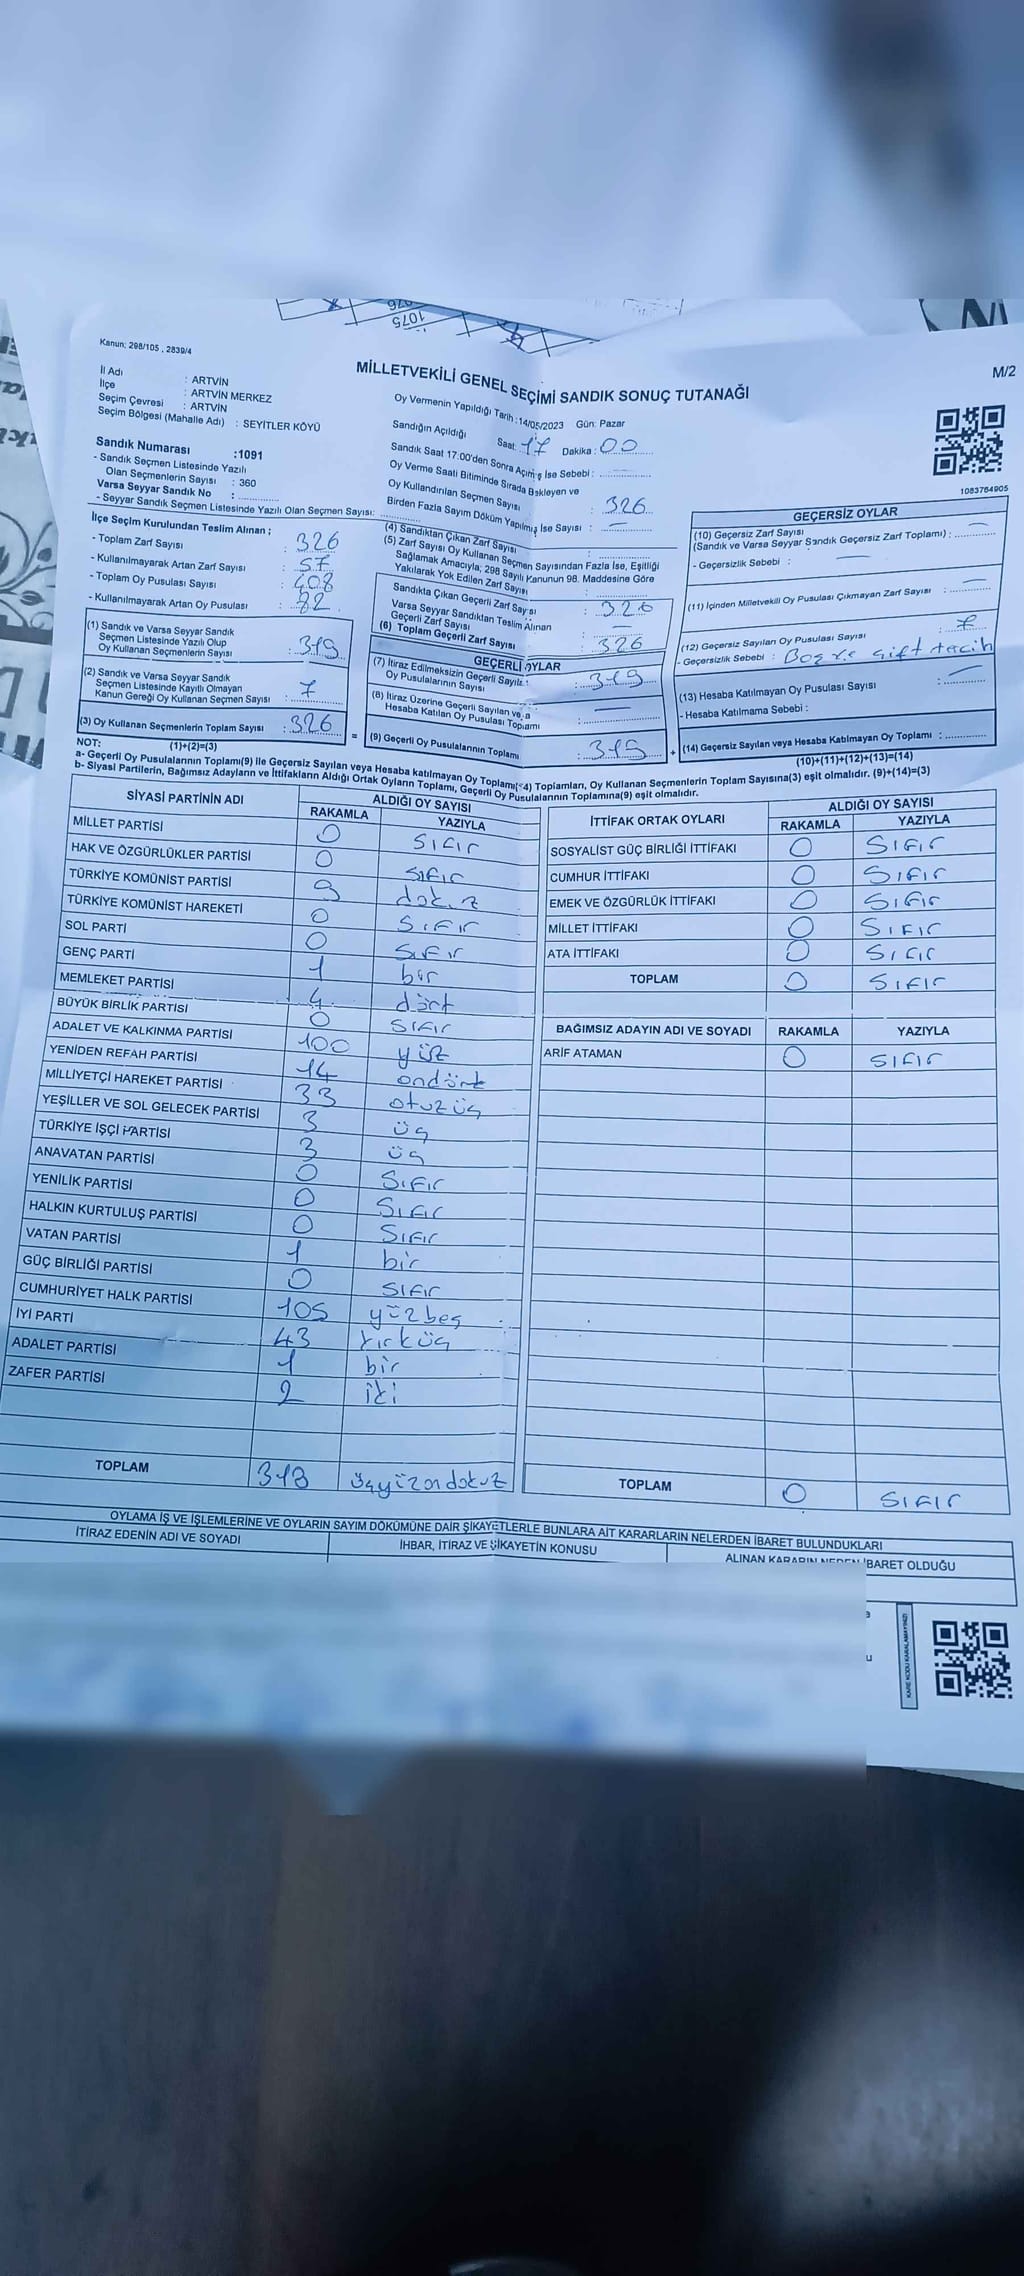 1075
Kanun; 298/105 , 2839/4
MİLLETVEKİLİ GENEL SEÇİMİ SANDIK SONUÇ TUTANAĞI
M/2
İl Adı : ARTVİN
İlçe : ARTVİN MERKEZ
Seçim Çevresi : ARTVİN
Seçim Bölgesi (Mahalle Adı) : SEYİTLER KÖYÜ
Oy Vermenin Yapıldığı Tarih :14/05/2023 Gün: Pazar
Sandığın Açıldığı Saat: 17 Dakika : 00
Sandık Saat 17:00'den Sonra Açılmış İse Sebebi :
Oy Verme Saati Bitiminde Sırada Bekleyen ve
Oy Kullandırılan Seçmen Sayısı : 326
Birden Fazla Sayım Döküm Yapılmış İse Sayısı : —
1083764905
Sandık Numarası :1091
- Sandık Seçmen Listesinde Yazılı
Olan Seçmenlerin Sayısı : 360
Varsa Seyyar Sandık No :
- Seyyar Sandık Seçmen Listesinde Yazılı Olan Seçmen Sayısı:
İlçe Seçim Kurulundan Teslim Alınan ;
- Toplam Zarf Sayısı : 326
- Kullanılmayarak Artan Zarf Sayısı : 57
- Toplam Oy Pusulası Sayısı : 408
- Kullanılmayarak Artan Oy Pusulası : 82
(1) Sandık ve Varsa Seyyar Sandık
Seçmen Listesinde Yazılı Olup
Oy Kullanan Seçmenlerin Sayısı : 319
(2) Sandık ve Varsa Seyyar Sandık
Seçmen Listesinde Kayıtlı Olmayan
Kanun Gereği Oy Kullanan Seçmen Sayısı : 7
(3) Oy Kullanan Seçmenlerin Toplam Sayısı : 326
(1)+(2)=(3)
(4) Sandıktan Çıkan Zarf Sayısı
(5) Zarf Sayısı Oy Kullanan Seçmen Sayısından Fazla İse, Eşitliği
Sağlamak Amacıyla; 298 Sayılı Kanunun 98. Maddesine Göre
Yakılarak Yok Edilen Zarf Sayısı
Sandıkta Çıkan Geçerli Zarf Sayısı : 326
Varsa Seyyar Sandıktan Teslim Alınan
Geçerli Zarf Sayısı : —
(6) Toplam Geçerli Zarf Sayısı : 326
GEÇERLİ OYLAR
(7) İtiraz Edilmeksizin Geçerli Sayılan
Oy Pusulalarının Sayısı : 319
(8) İtiraz Üzerine Geçerli Sayılan ve
Hesaba Katılan Oy Pusulası Toplamı : —
= (9) Geçerli Oy Pusulalarının Toplamı : 319 +
GEÇERSİZ OYLAR
(10) Geçersiz Zarf Sayısı
(Sandık ve Varsa Seyyar Sandık Geçersiz Zarf Toplamı) : —
- Geçersizlik Sebebi : —
(11) İçinden Milletvekili Oy Pusulası Çıkmayan Zarf Sayısı : —
(12) Geçersiz Sayılan Oy Pusulası Sayısı :
- Geçersizlik Sebebi : Boş ve çift tercih
(13) Hesaba Katılmayan Oy Pusulası Sayısı : —
- Hesaba Katılmama Sebebi :
(14) Geçersiz Sayılan veya Hesaba Katılmayan Oy Toplamı :
(10)+(11)+(12)+(13)=(14)
NOT:
a- Geçerli Oy Pusulalarının Toplamı(9) ile Geçersiz Sayılan veya Hesaba katılmayan Oy Toplamı(14) Toplamları, Oy Kullanan Seçmenlerin Toplam Sayısına(3) eşit olmalıdır. (9)+(14)=(3)
b- Siyasi Partilerin, Bağımsız Adayların ve İttifakların Aldığı Ortak Oyların Toplamı, Geçerli Oy Pusulalarının Toplamına(9) eşit olmalıdır.
SİYASİ PARTİNİN ADI ALDIĞI OY SAYISI
RAKAMLA YAZIYLA
MİLLET PARTİSİ 0 sıfır
HAK VE ÖZGÜRLÜKLER PARTİSİ 0 sıfır
TÜRKİYE KOMÜNİST PARTİSİ 9 dokuz
TÜRKİYE KOMÜNİST HAREKETİ 0 sıfır
SOL PARTİ 0 sıfır
GENÇ PARTİ 1 bir
MEMLEKET PARTİSİ 4 dört
BÜYÜK BİRLİK PARTİSİ 0 sıfır
ADALET VE KALKINMA PARTİSİ 100 yüz
YENİDEN REFAH PARTİSİ 14 ondört
MİLLİYETÇİ HAREKET PARTİSİ 33 otuzüç
YEŞİLLER VE SOL GELECEK PARTİSİ 3 üç
TÜRKİYE İŞÇİ PARTİSİ 3 üç
ANAVATAN PARTİSİ 0 sıfır
YENİLİK PARTİSİ 0 sıfır
HALKIN KURTULUŞ PARTİSİ 0 sıfır
VATAN PARTİSİ 1 bir
GÜÇ BİRLİĞİ PARTİSİ 0 sıfır
CUMHURİYET HALK PARTİSİ 105 yüzbeş
İYİ PARTİ 43 kırküç
ADALET PARTİSİ 1 bir
ZAFER PARTİSİ 2 iki
TOPLAM 319 üçyüzondokuz
İTTİFAK ORTAK OYLARI ALDIĞI OY SAYISI
RAKAMLA YAZIYLA
SOSYALİST GÜÇ BİRLİĞİ İTTİFAKI 0 sıfır
CUMHUR İTTİFAKI 0 sıfır
EMEK VE ÖZGÜRLÜK İTTİFAKI 0 sıfır
MİLLET İTTİFAKI 0 sıfır
ATA İTTİFAKI 0 sıfır
TOPLAM 0 sıfır
BAĞIMSIZ ADAYIN ADI VE SOYADI RAKAMLA YAZIYLA
ARİF ATAMAN 0 sıfır
TOPLAM 0 sıfır
OYLAMA İŞ VE İŞLEMLERİNE VE OYLARIN SAYIM DÖKÜMÜNE DAİR ŞİKAYETLERLE BUNLARA AİT KARARLARIN NELERDEN İBARET BULUNDUKLARI
İTİRAZ EDENİN ADI VE SOYADI İHBAR, İTİRAZ VE ŞİKAYETİN KONUSU ALINAN KARARIN NEDEN İBARET OLDUĞU
KARE KODU KARALAMAYINIZ!